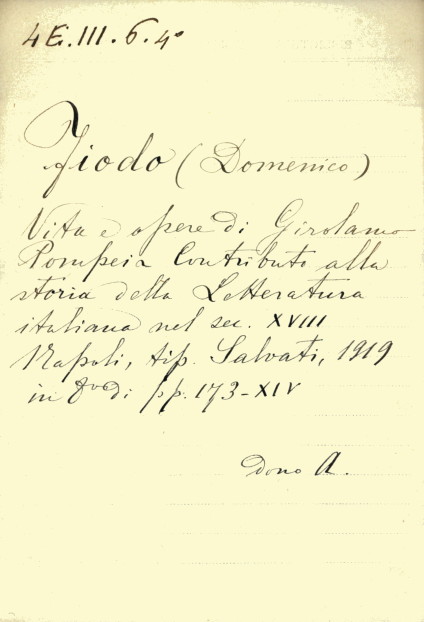 4E.III.6.4°
Fiodo (Domenico)
Vita e opere di Girolamo
Pompei Contributo alla
storia della Letteratura
italiana nel sec. XVIII
Napoli, tip. Salvati, 1919
in 8vo di pp. 173-XIV
dono A.